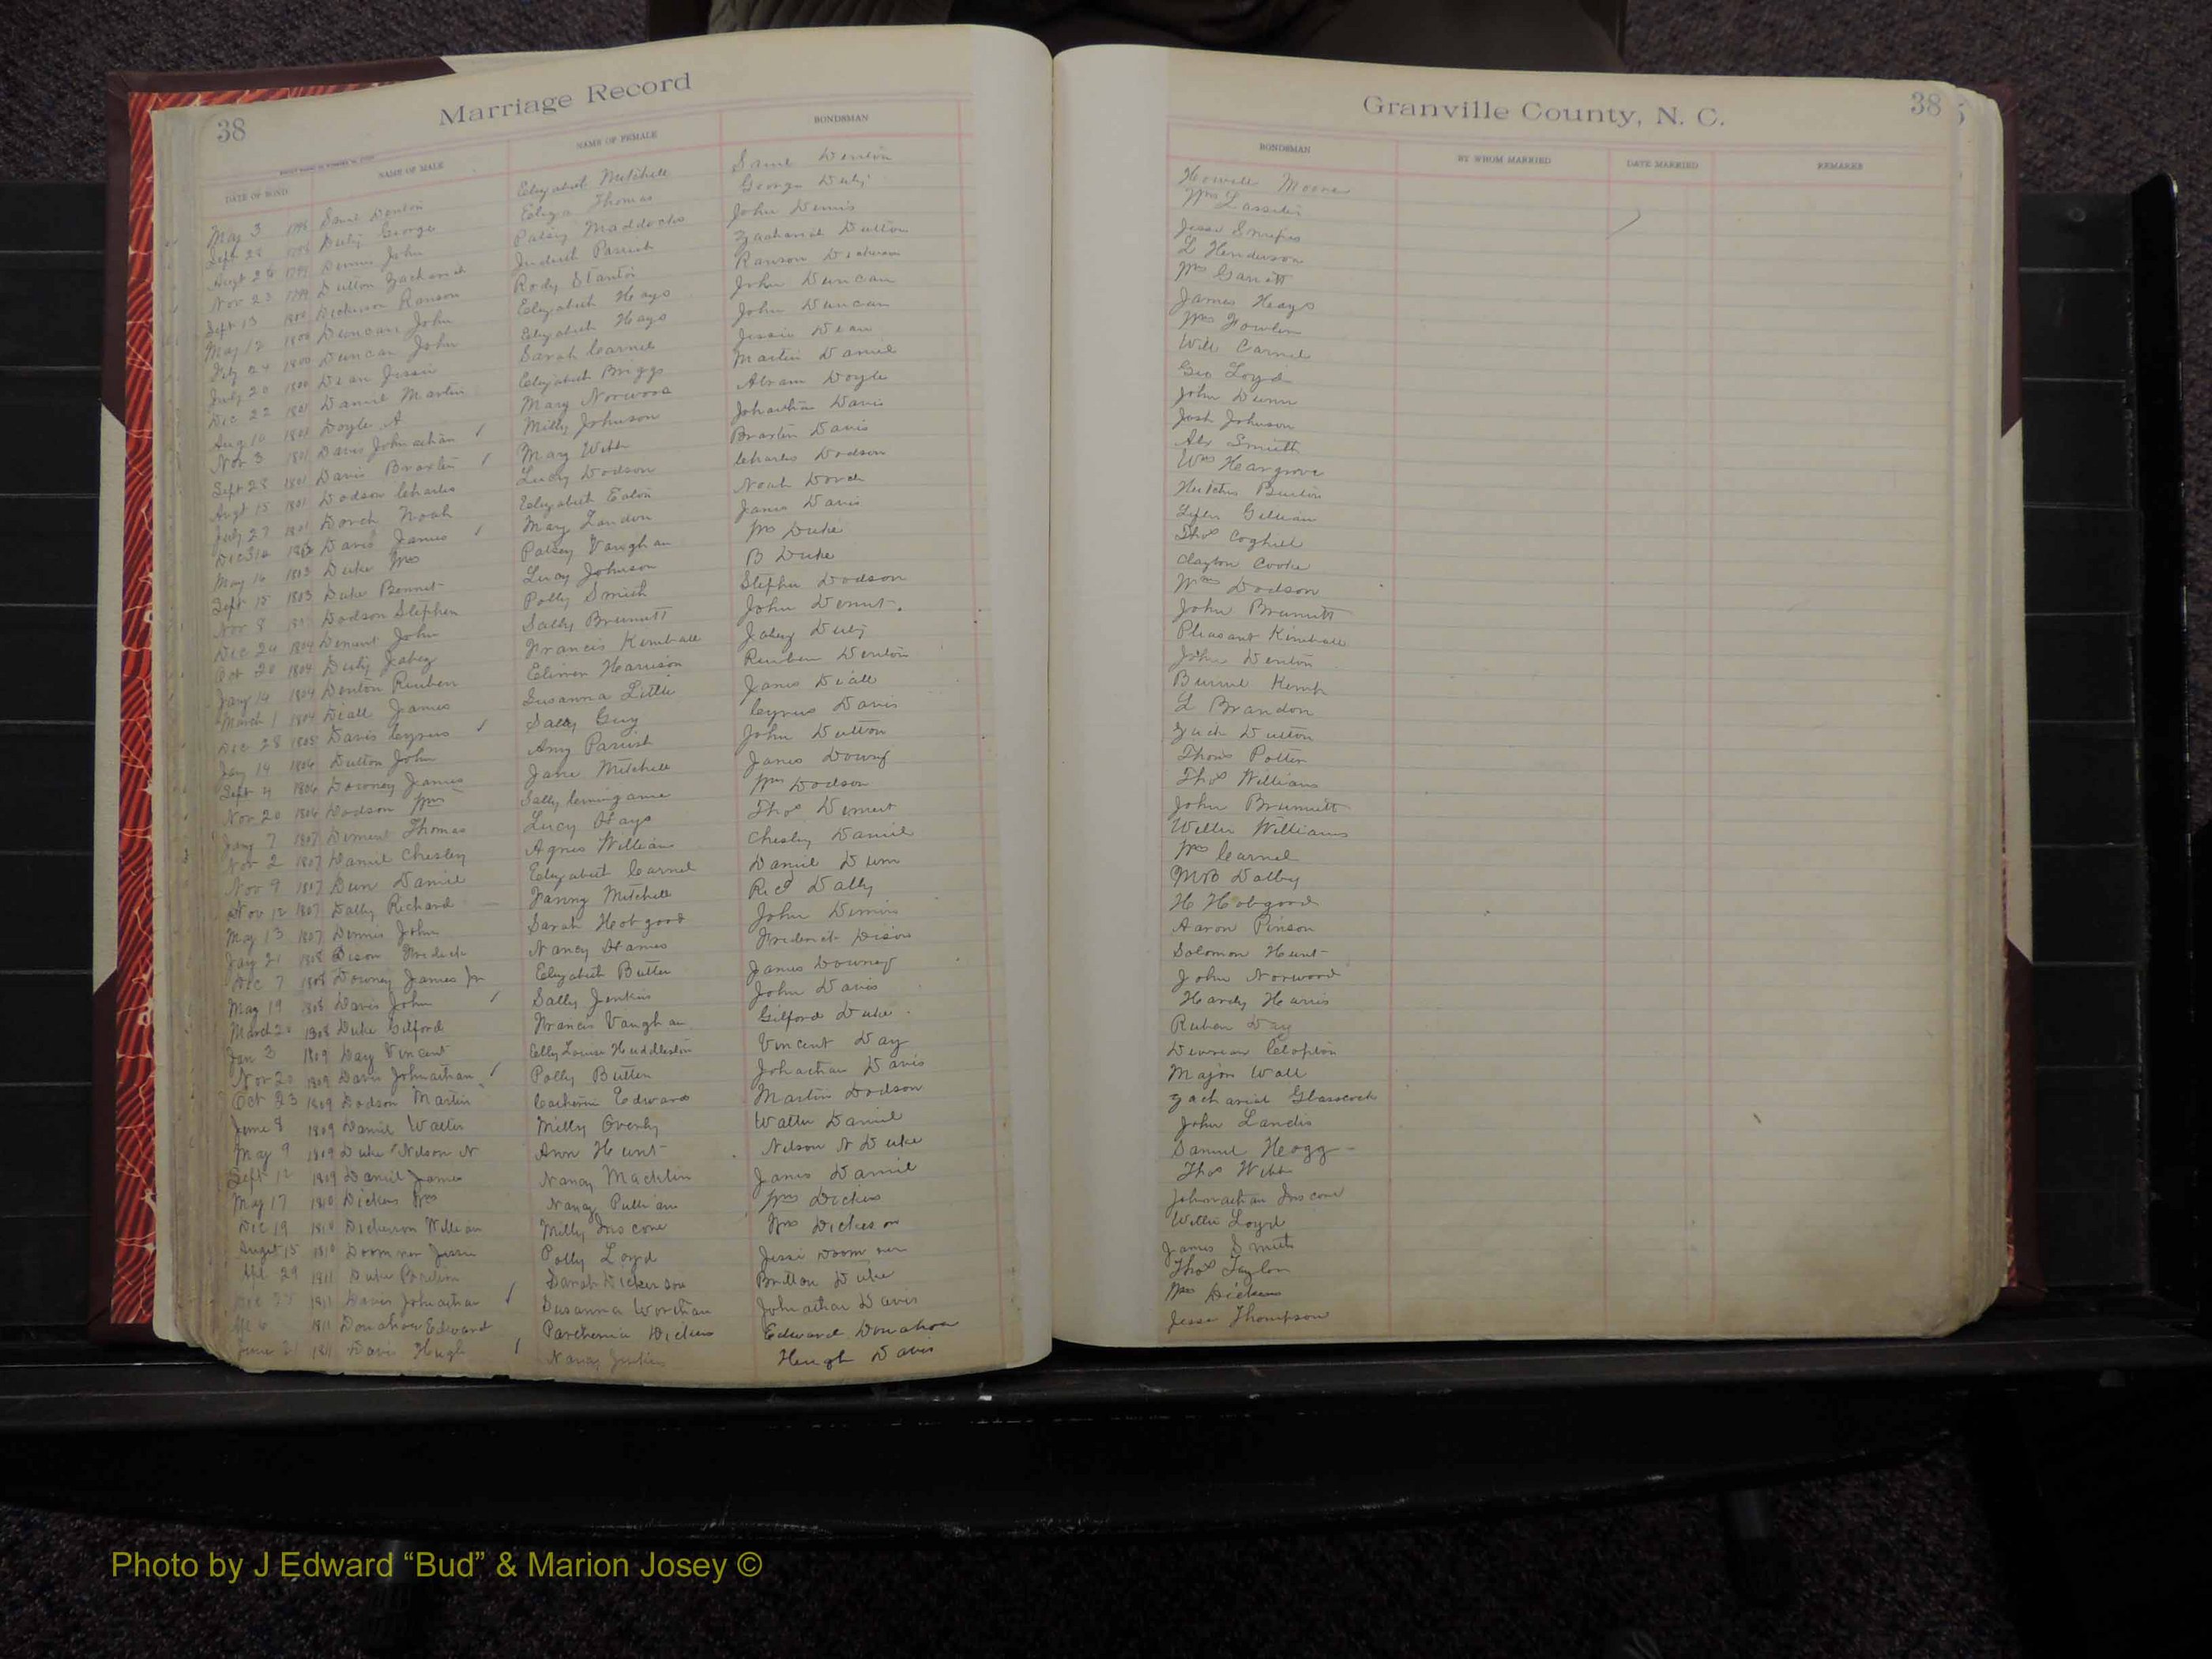 38
Marriage Record
DATE OF BOND
NAME OF MALE
NAME OF FEMALE
BONDSMAN
May 3 Saml Denton Elizabeth Mitchell Saml Denton
Sept 28 Duty George Eliza Thomas George Duty
Augt 26 1799 Dennis John Patsy Maddocks John Dennis
Nov 23 1799 Dutton Zachariah Judith Parish Zachariah Dutton
Sept 13 1800 Dickerson Ranson Rody Stanton Ranson Dickerson
May 12 1800 Duncan John Elizabeth Hays John Duncan
24 1800 Duncan John Elizabeth Hays John Duncan
July 20 1800 Dean Jessie Sarah Carnel Jessie Dean
Dec 22 1801 Daniel Martin Elizabeth Briggs Martin Daniel
Aug 10 1801 Doyle A Mary Norwood Abram Doyle
Nov 3 1801 Davis Johnathan Milly Johnson Johnathan Davis
Sept 28 1801 Davis Braxton Mary Webb Braxton Davis
Augt 15 1801 Dodson Charles Lucy Dodson Charles Dodson
July 27 1801 Dorch Noah Elizabeth Eaton Noah Dorch
Dec 30 Davis James Mary Landon James Davis
May 16 1803 Duke Wm Patsey Vaughan Wm Duke
Sept 15 1803 Duke Bennet Lucy Johnson B Duke
Nov 8 Dodson Stephen Polly Smith Stephen Dodson
Dec 24 1804 Dement John Sally Brumitt John Demnt.
Oct 20 1804 Duty Jabez Francis Kimball Jabez Duty
Jany 14 1804 Denton Reuben Harrison Reuben Denton
March 1 1804 Diall James Susanna Little James Diall
Dec 28 1805 Davis Cyrus Sally Guy Cyrus Davis
Jany 14 1806 Dutton John Amy Parish John Dutton
Sept 4 1806 Downey James Jane Mitchell James Downey
Nov 20 1806 Dodson Wm Sally Cuningame Wm Dodson
Jany 7 1807 Dement Thomas Lucy Hays Thos Dement
Nov 2 1807 Daniel Chesley Agnes William Chesley Daniel
Nov 9 1807 Dun Daniel Elizabeth Carnel Daniel Dunn
Nov 12 1807 Dalby Richard Fanny Mitchell Ricd Dalby
May 13 1807 Dennis John Sarah Hobgood John Dennis
Jany 21 1808 Dison Fredrick Nancy Hames Frederick Dison
Dec 7 1808 Downey James Jr Elizabeth Butler James Downey
May 19 1808 Davis John Sally Jenkins John Davis
March 20 1308 Duke Gilford Francis Vaughan Gilford Duke
Jan 3 1809 Day Vincent Louisa Huddleston Vincent Day
Nov 20 1809 Davis Johnathan Polly Butler Johnathan Davis
Oct 23 1809 Dodson Martin Catherine Edwards Martin Dodson
June 8 1809 Daniel Walter Milly Overby Walter Daniel
May 9 1809 Duke Nelson N Ann Hunt Nelson N Duke
Sept 12 1809 Daniel James Nancy Macklin James Daniel
May 17 1810 Dickens Wm Nancy Pulliam Wm Dickens
Dec 19 1810 Dickerson William Milly Inscore Wm Dickerson
Augst 15 1810 Doomner Jessie Polly Loyd Jessi Doomner
Apl 29 1811 Duke Sarah Dickerson Britton Duke
1811 Davis Johnathan Susanna Worthan Johnathan Davis
6 1811 Donahow Edward Parthenia Dickens Edward Donahow
June 21 1811 Davis Hugh Nancy Jenkins Hugh Davis
Granville County, N. C.
38
BONDSMAN
BY WHOM MARRIED
DATE MARRIED
REMARKS
Howell Moore
Wm Lassiter
Jesse Sneferes
L Henderson
Wm Garrett
James Hays
Wm Fowler
Will Carnel
Geo Loyd
John Dunn
Josh Johnson
Alx Smith
Wm Hargrove
Hutchn Burton
Gilliam
Thos Coghill
Clayton Cooke
Wm Dodson
John Brumitt
Pleasant Kimball
John Denton
Burrel Kemp
L Brandon
Zach Dutton
Thomas Potter
Thos William
John Brumitt
Willie Williams
Wm Carnel
Dalby
H Hobgood
Aaron Pinson
Solomon Hunt
John Norwood
Hardy Harris
Ruben Day
Clopton
Major Wall
Zachariah Glasscock
John Landis
Samuel Hogg
Thos Webb
Johnnathan Inscore
Willie Loyd
James Smith
Thos Taylor
Wm Dickens
Jesse Thompson
Photo by J Edward “Bud” & Marion Josey ©